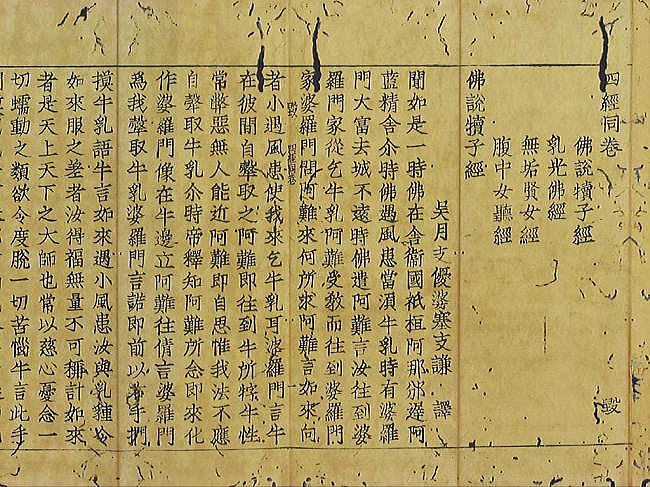 四經同卷
佛說犢子經
乳光佛經
無垢賢女經
腹中女聽經
佛說犢子經
吳月支優婆塞支謙譯
聞如是一時佛在舍衛國祇桓阿那邠坻阿
藍精舍尒時佛遇風患當須牛乳時有婆羅
門大富去城不遠時佛遣阿難言汝往到婆
羅門家從乞牛乳阿難受教而往到婆羅門
家婆羅門問阿難來何所求阿難言如來向
者小遇風患使我來乞牛乳耳婆羅門言牛
在彼間自𤛗取之阿難即往到牛所犉牛性
常弊惡無人能近阿難即自思惟我法不應
自𤛗取牛乳尒時帝釋知阿難所念即來化
作婆羅門像在牛邊立阿難往倩言婆羅門
為我𤛗取牛乳婆羅門言諾即前以右手捫
摸牛乳語牛言如來遇小風患汝與乳湩令
如來服之差者汝得福無量不可稱計如來
者是天上天下之大師也常以慈心憂念一
切蠕動之類欲令度脫一切苦惱牛言此手